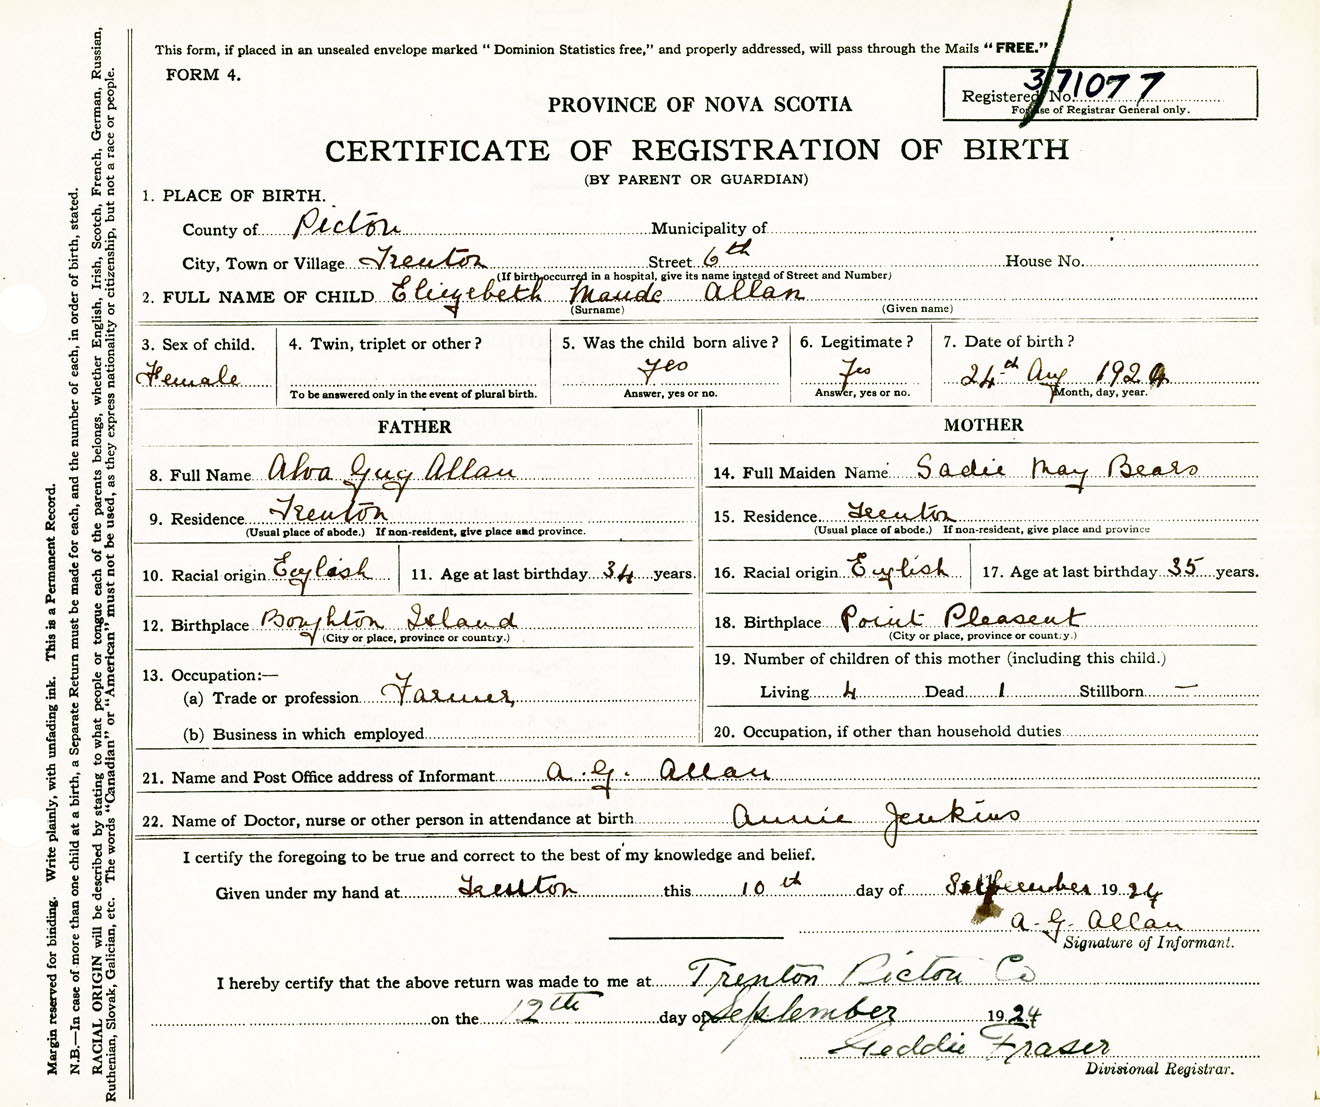 This form, if placed in an unsealed envelope marked "Dominion Statistics free," and properly addressed, will pass through the Mails "FREE."
FORM 4.
Registered No. 371077
For use of Registrar General only.
PROVINCE OF NOVA SCOTIA
CERTIFICATE OF REGISTRATION OF BIRTH
(BY PARENT OR GUARDIAN)
1. PLACE OF BIRTH.
County of Pictou Municipality of
City, Town or Village Trenton Street 6th House No.
(If birth occurred in a hospital, give its name instead of Street and Number)
2. FULL NAME OF CHILD Eliezebeth Maude Allan
(Surname) (Given name)
3. Sex of child. 4. Twin, triplet or other? 5. Was the child born alive? 6. Legitimate? 7. Date of birth?
Female Yes Yes 24th Aug 1924
To be answered only in the event of plural birth. Answer, yes or no. Answer, yes or no. Month, day, year.
FATHER MOTHER
8. Full Name Alva Guy Allan 14. Full Maiden Name Sadie May Bears
9. Residence Trenton 15. Residence Trenton
(Usual place of abode.) If non-resident, give place and province. (Usual place of abode.) If non-resident, give place and province
10. Racial origin English 11. Age at last birthday 34 years. 16. Racial origin English 17. Age at last birthday 35 years.
12. Birthplace Boughton Island 18. Birthplace Point Pleasent
(City or place, province or country.) (City or place, province or country.)
13. Occupation:— 19. Number of children of this mother (including this child.)
(a) Trade or profession Farmer Living 4 Dead 1 Stillborn —
(b) Business in which employed 20. Occupation, if other than household duties
21. Name and Post Office address of Informant A. G. Allan
22. Name of Doctor, nurse or other person in attendance at birth Annie Jenkins
I certify the foregoing to be true and correct to the best of my knowledge and belief.
Given under my hand at Trenton this 10th day of 1924
A. G. Allan
Signature of Informant.
I hereby certify that the above return was made to me at Trenton Pictou Co
on the 12th day of September 1924
Geddie Fraser
Divisional Registrar.
Margin reserved for binding. Write plainly, with unfading ink. This is a Permanent Record.
N.B.—In case of more than one child at a birth, a Separate Return must be made for each, and the number of each, in order of birth, stated.
RACIAL ORIGIN will be described by stating to what people or tongue each of the parents belongs, whether English, Irish, Scotch, French, German, Russian,
Ruthenian, Slovak, Galician, etc. The words "Canadian" or "American" must not be used, as they express nationality or citizenship, but not a race or people.